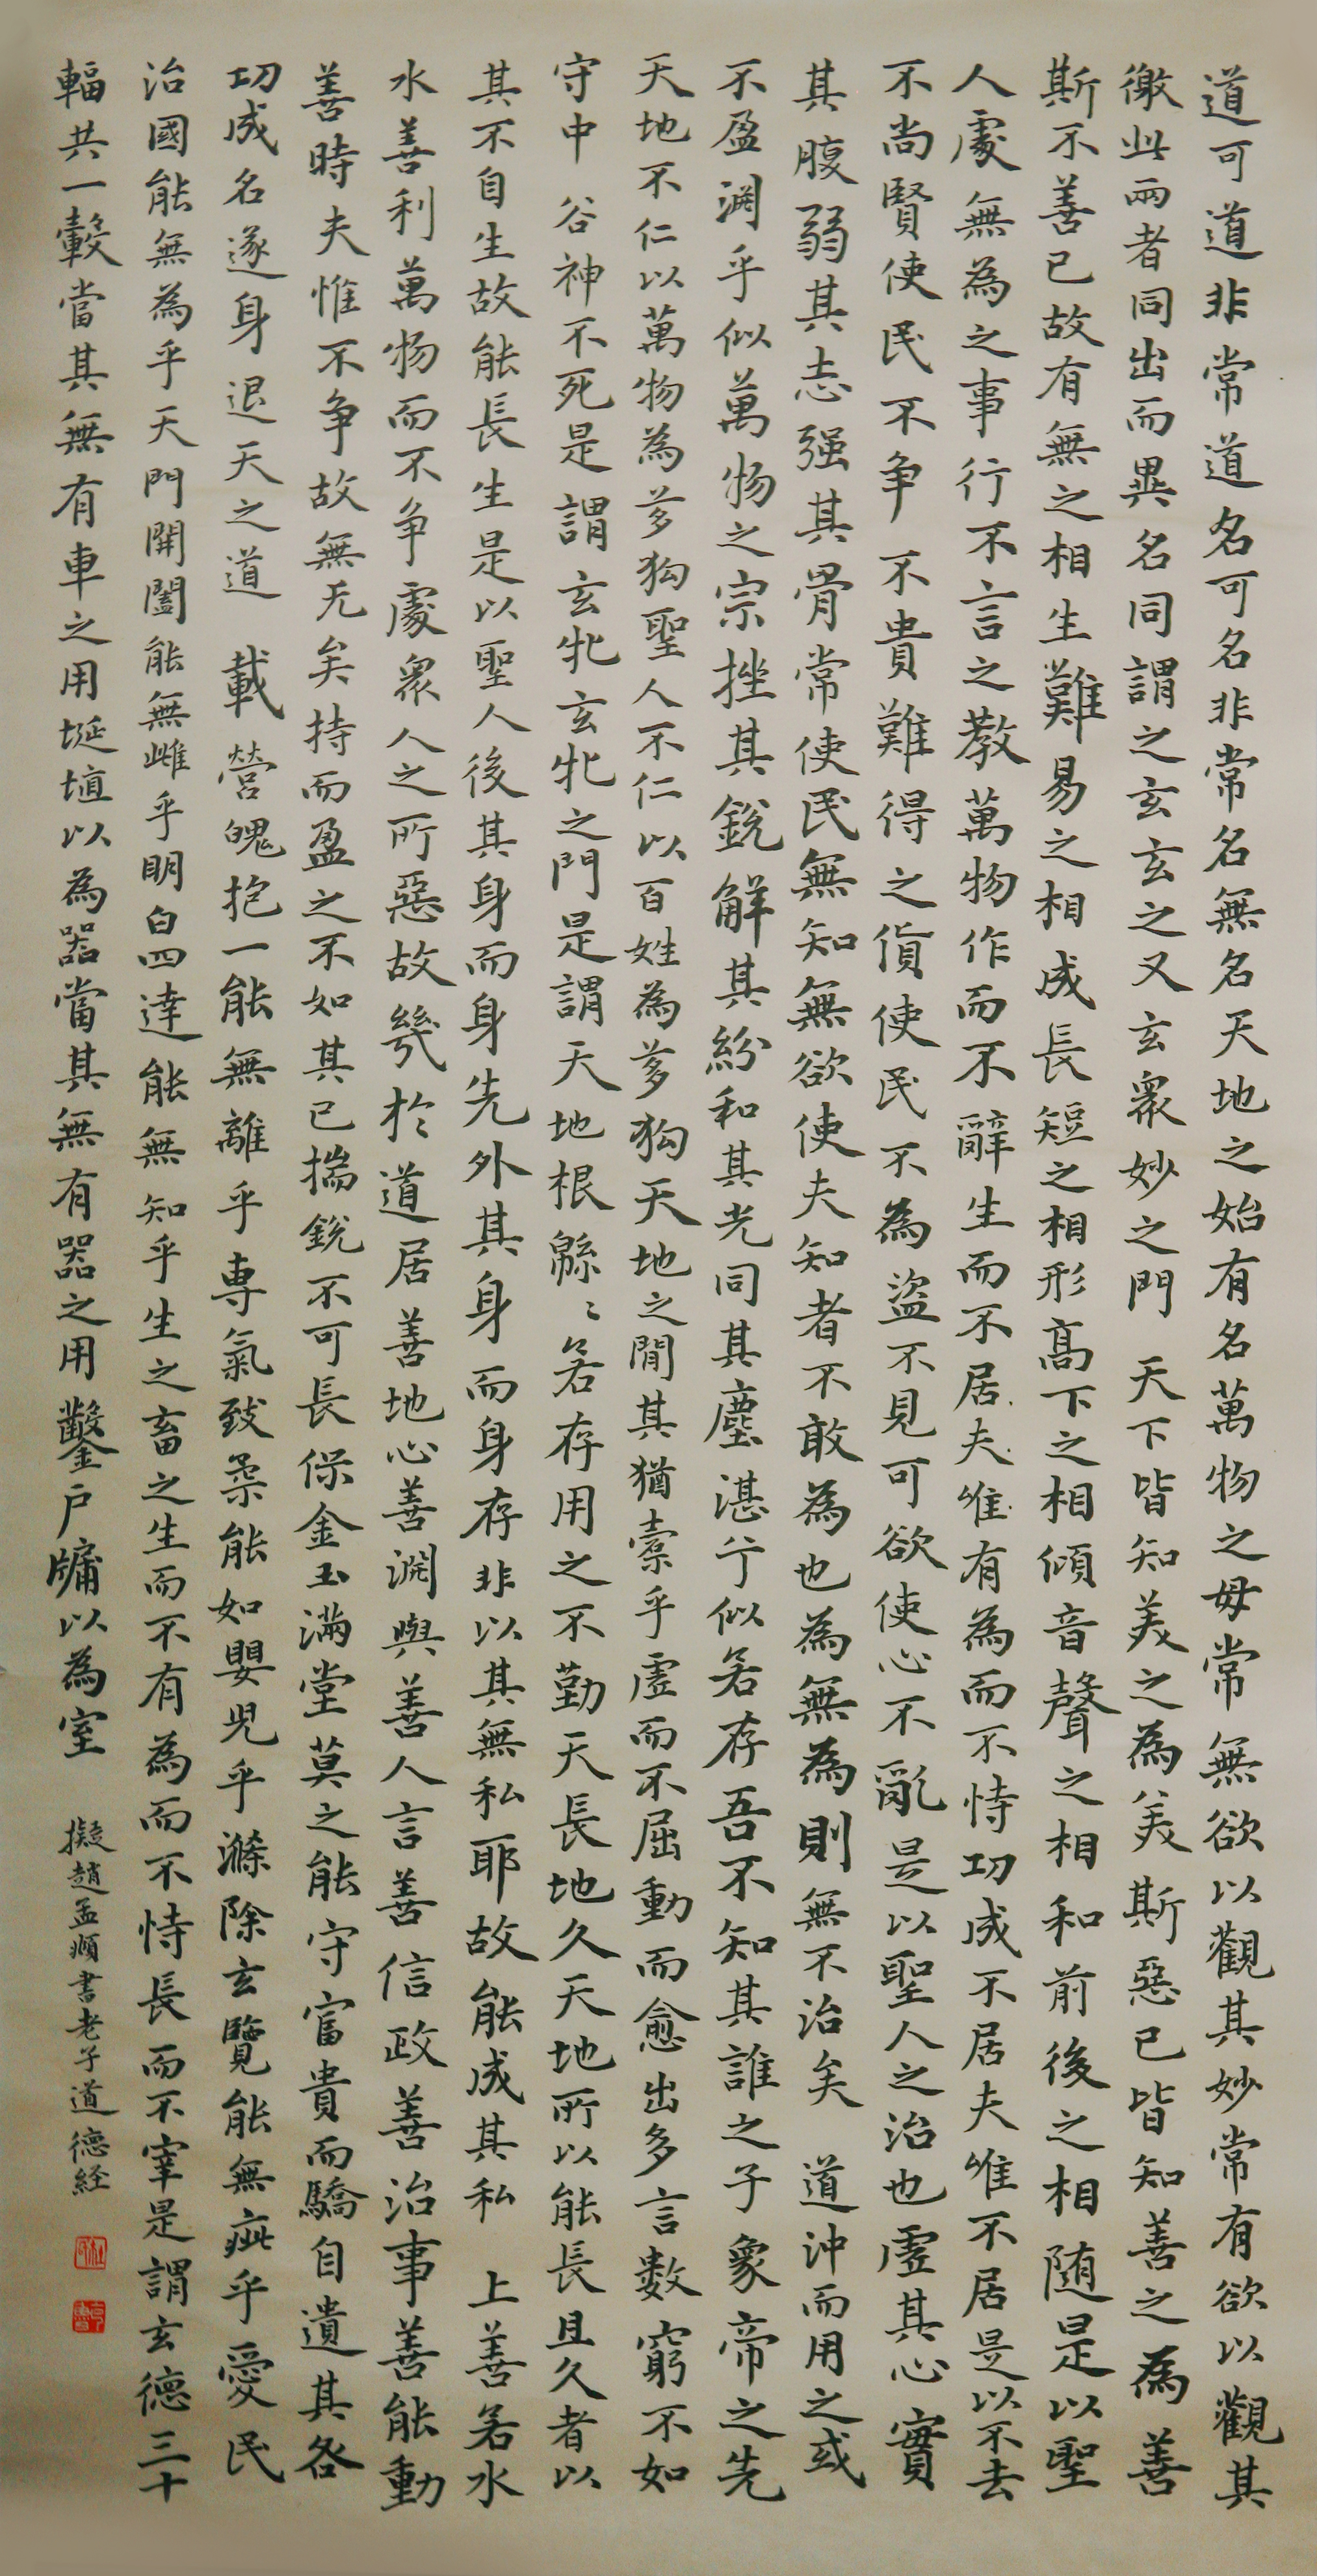 道可道非常道名可名非常名無名天地之始有名萬物之母常無欲以觀其妙常有欲以觀其
徼此兩者同出而異名同謂之玄玄之又玄衆妙之門 天下皆知美之為美斯惡已皆知善之為善
斯不善已故有無之相生難易之相成長短之相形高下之相傾音聲之相和前後之相随是以聖
人處無為之事行不言之教萬物作而不辭生而不居夫唯有為而不恃功成不居夫唯不居是以不去
不尚賢使民不争 不貴難得之貨使民不為盜不見可欲使心不亂是以聖人之治也虛其心實
其腹弱其志强其骨常使民無知無欲使夫知者不敢為也為無為則無不治矣 道沖而用之或
不盈淵乎似萬物之宗挫其銳解其紛和其光同其塵湛兮似若存吾不知其誰之子象帝之先
天地不仁以萬物為芻狗聖人不仁以百姓為芻狗天地之間其猶橐乎虛而不屈動而愈出多言數窮不如
守中 谷神不死是謂玄牝玄牝之門是謂天地根緜〻若存用之不勤天長地久天地所以能長且久者以
其不自生故能長生是以聖人後其身而身先外其身而身存非以其無私耶故能成其私 上善若水
水善利萬物而不争處衆人之所惡故幾於道居善地心善淵與善人言善信政善治事善能動
善時夫惟不争故無尤矣持而盈之不如其已揣銳不可長保金玉滿堂莫之能守富貴而驕自遺其咎
功成名遂身退天之道 載營魄抱一能無離乎専氣致柔能如嬰兒乎滌除玄覽能無疵乎愛民
治國能無為乎天門開闔能無雌乎明白四達能無知乎生之畜之生而不有為而不恃長而不宰是謂玄德三十
輻共一轂當其無有車之用埏埴以為器當其無有器之用鑿戶牖以為室
擬趙孟頫書老子道德経